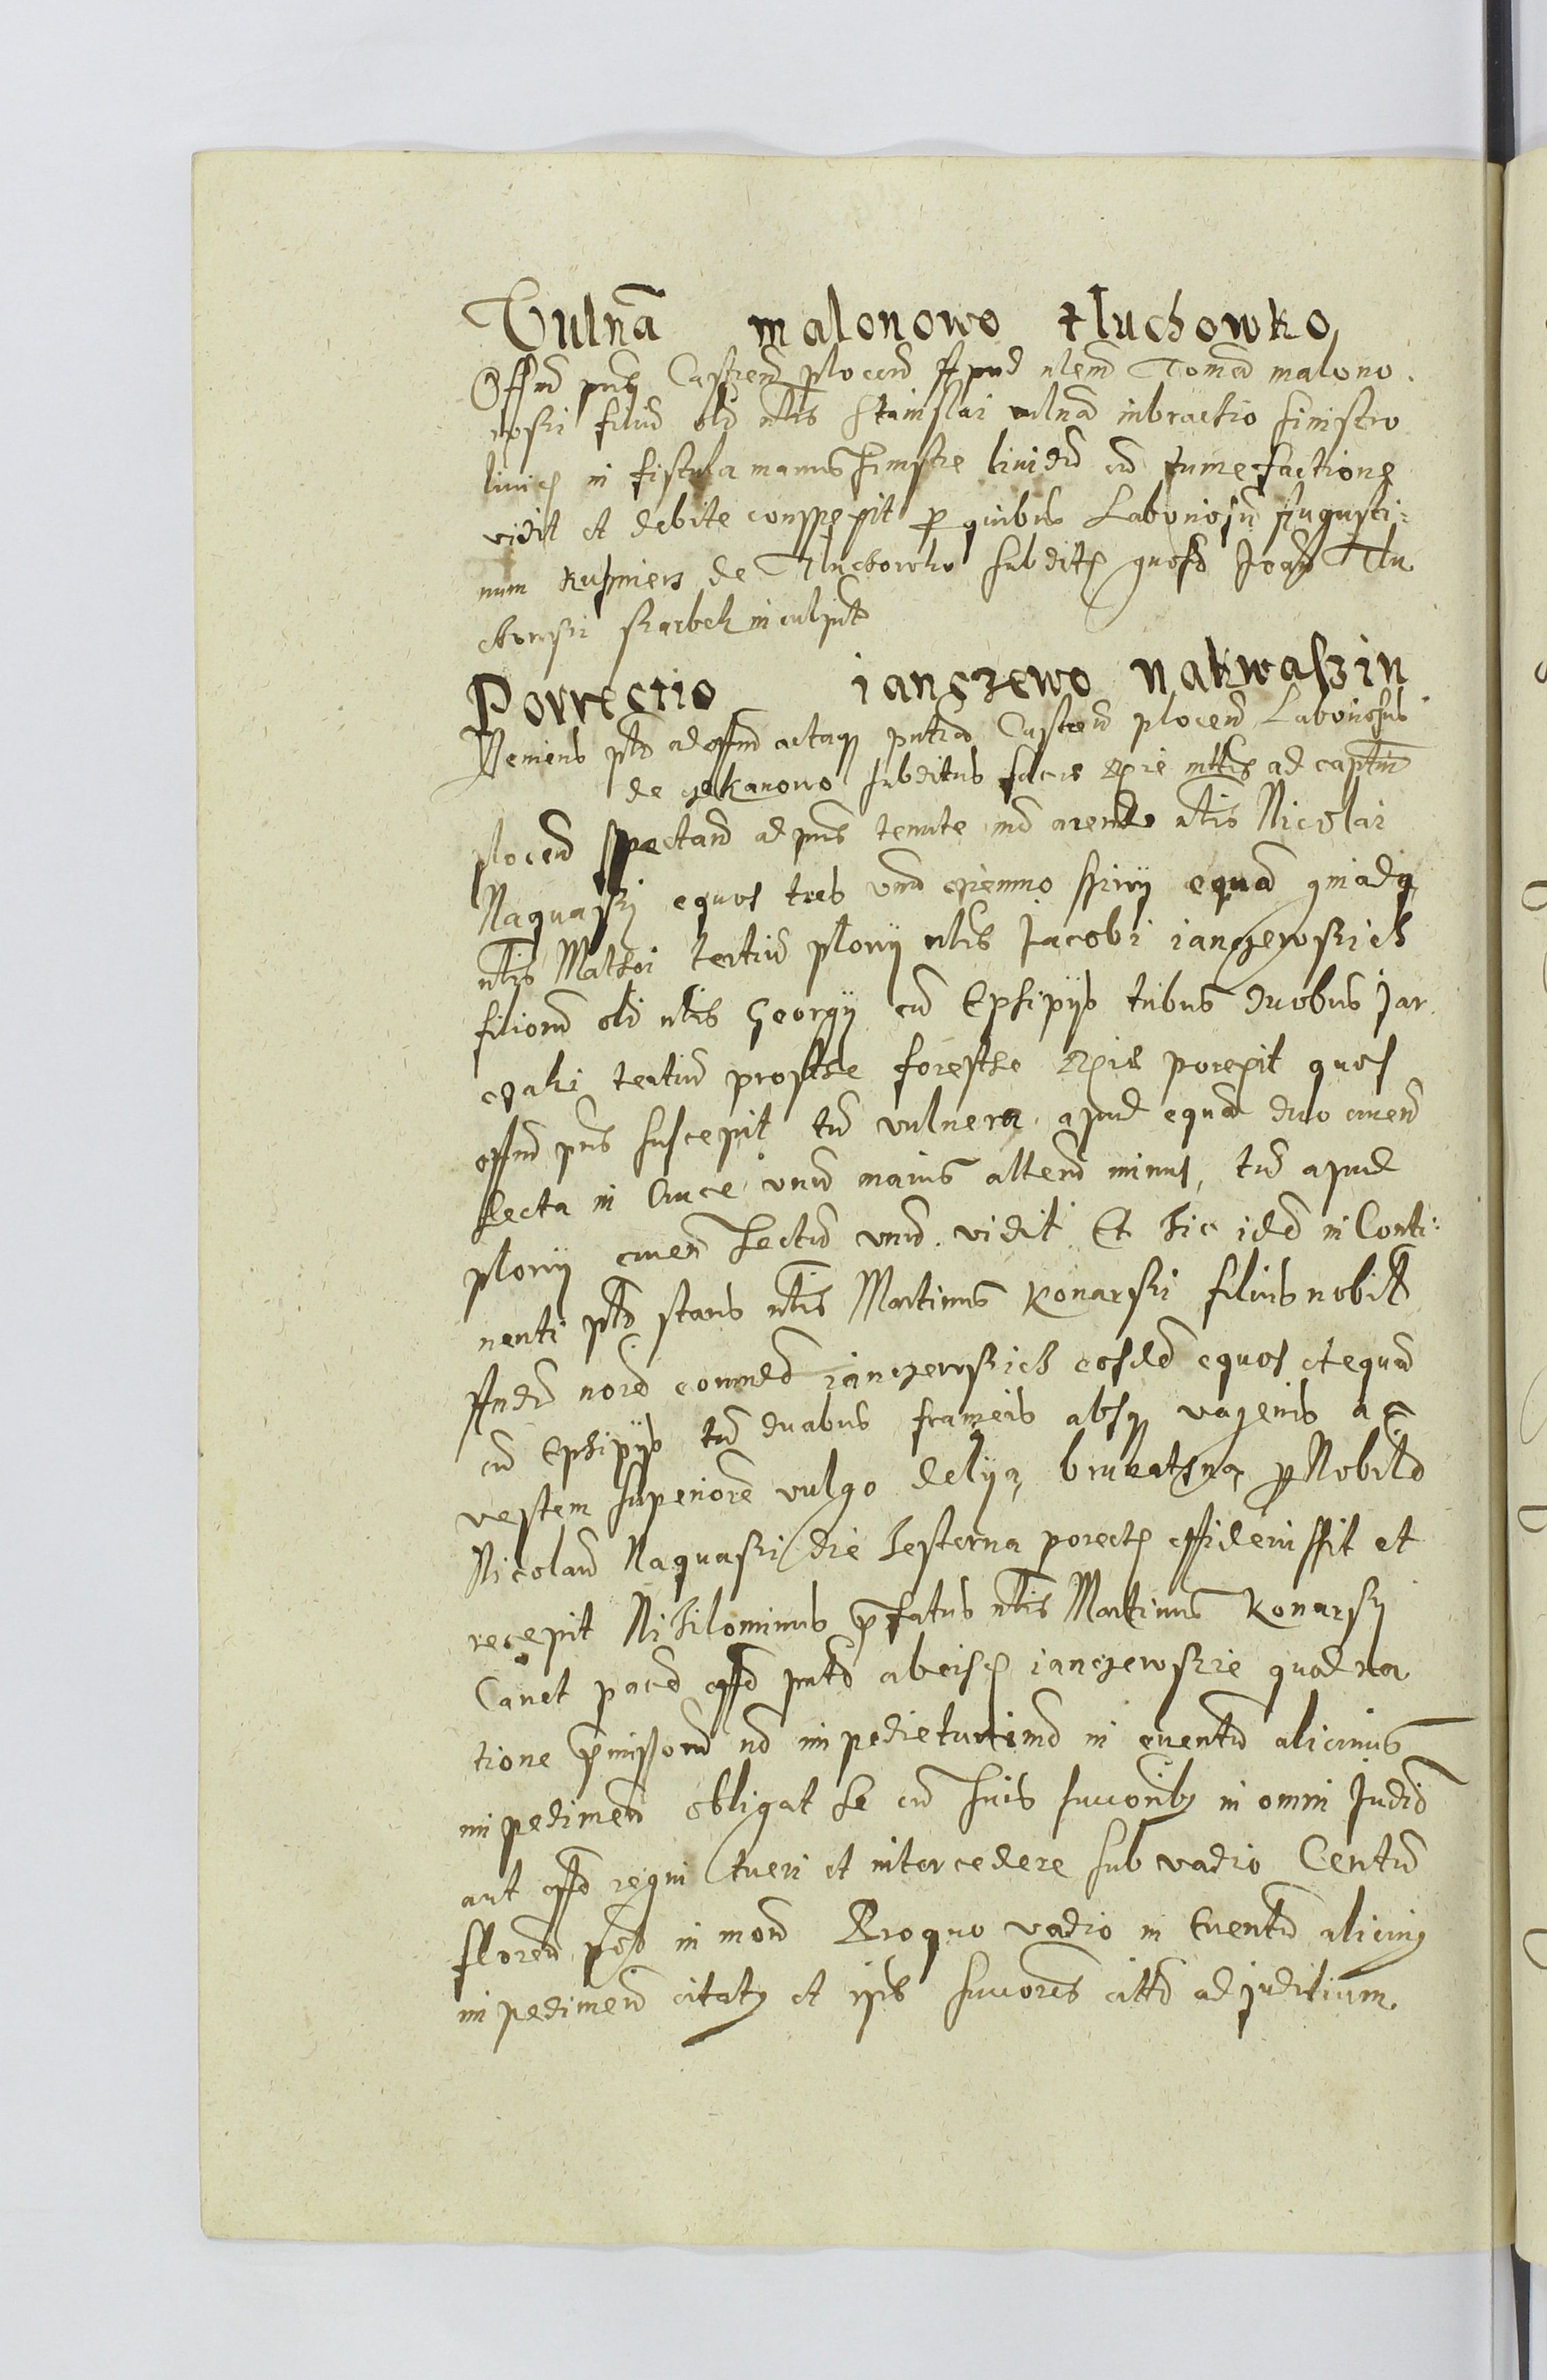 Vulnā malonowo tłuchowko
Offm pns Castren plocen Apud nlem Tomā malono
wski filiū olī nlis Stanislai vulnā in bractio sinistro
in fistula manus sinistre lividū cū tumefactione
vidit et debite conspexit p quibus Laboriosū Augusti=
num Kusmierz de Tluchowko subditū gnosi Joañ Tlu
chowski skarbek inculpat
Porrectio ianczewo Nakwaszin
Veniens ad offm actaq Castren plocen Laboriosus
de subditus sacre Rgie mttis ad captm
plocen spectan ad pns tenute nlis Nicolai
Naquaski equos tres vnū equā gniada
nlis Mathei tertiū plowy nlis Jacobi ianczewskich
filiorū olī nlis Georgÿ cū Ephipÿs tribus duobus Jar
czaki tertiū prosthe foresthe Rgie porexit quos
offm pns suscepit tū vulnera apud equā duo cruen
secta in cruce vnū maius alterū minus, tū apud
plowy cruen sectū vnū vidit Et hic idē in Conti=
nenti stans nlis Martinus Konarski filius nobil
Andr noīe ianczewskich eosdē equos et equā
cū Ephipÿs tū duabus frameis absq vagenis ac
vestem superiorē vulgo delÿa brunatna p Nobilē
Nicolaū Naquaski die hesterna porect et
recepit Nihilominus pfatus nlis Martinus Konarsky
Cavet ianczewskie quod ra
tione pmissorū nō impedietur imo in eventū alicuius
impedimen obligat se cū suis succorib in omni Judio
aut offō regni tueri et intercedere sub vadio Centū
floren in mon Pro quo vadio in Eventū alicuius
impedimen citatus et ipis succores ad juditium